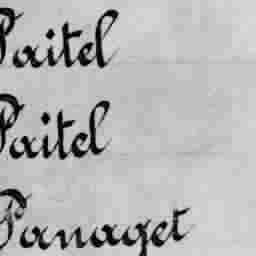 Paitel
Paitel
Panaget